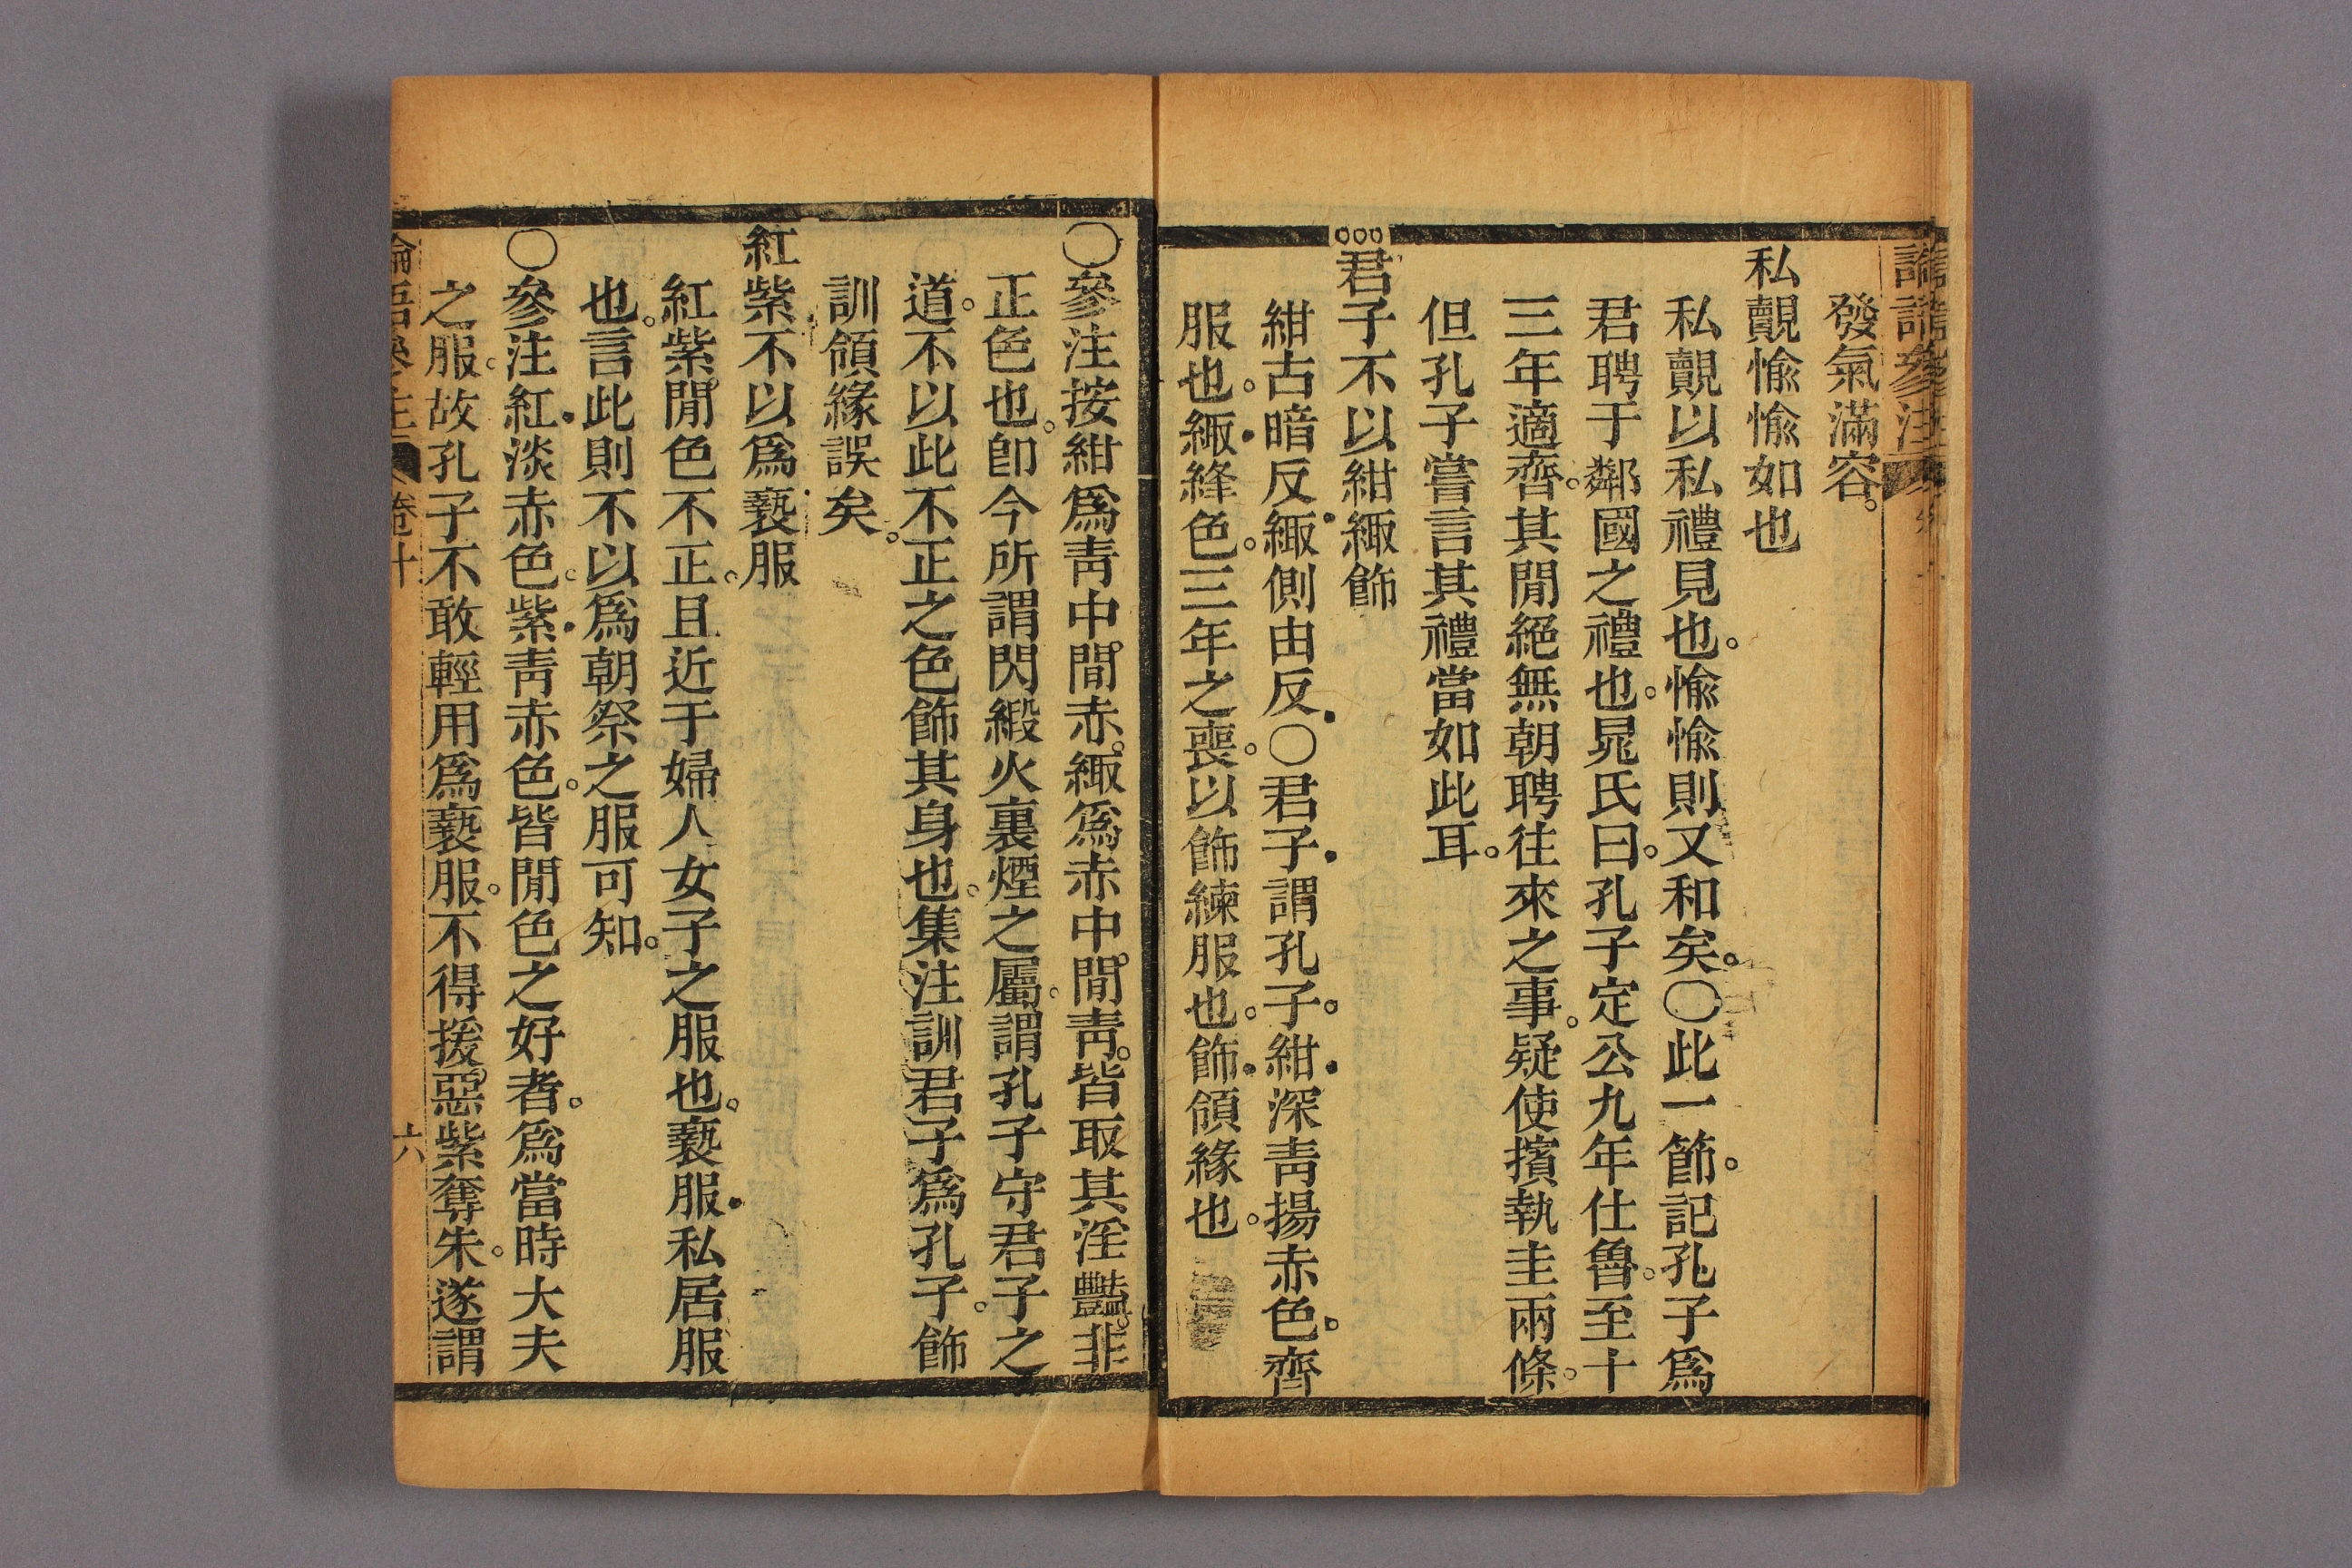 發氣滿容。
私覿愉愉如也
私覿以私禮見也。愉愉則又和矣。〇此一節。記孔子爲
君聘于鄰國之禮也。晁氏曰。孔子定公九年仕魯。至十
三年適齊。其閒絕無朝聘往來之事。疑使擯執圭兩條。
但孔子嘗言其禮當如此耳。
君子不以紺緅飾
紺古暗反緅側由反〇君子謂孔子。紺深靑揚赤色。齊
服也。緅絳色。三年之喪。以飾練服也。飾領緣也。
〇參注按紺爲靑中。間赤。緅爲赤中。閒靑。皆取其淫豔。非
正色也。卽今所謂閃緞火裏煙之屬。謂孔子守君子之
道。不以此不正之色飾其身也。集注訓君子爲孔子。飾
訓領緣誤矣。
紅紫不以爲褻服
紅紫閒色不正。且近于婦人女子之服也。褻服私居服
也。言此則不以爲朝祭之服可知。
〇參注紅淡赤色。紫靑赤色。皆閒色之好者。爲當時大夫
之服。故孔子不敢輕用爲褻服。不得援惡紫奪朱。遂謂
論語參注 卷十 六